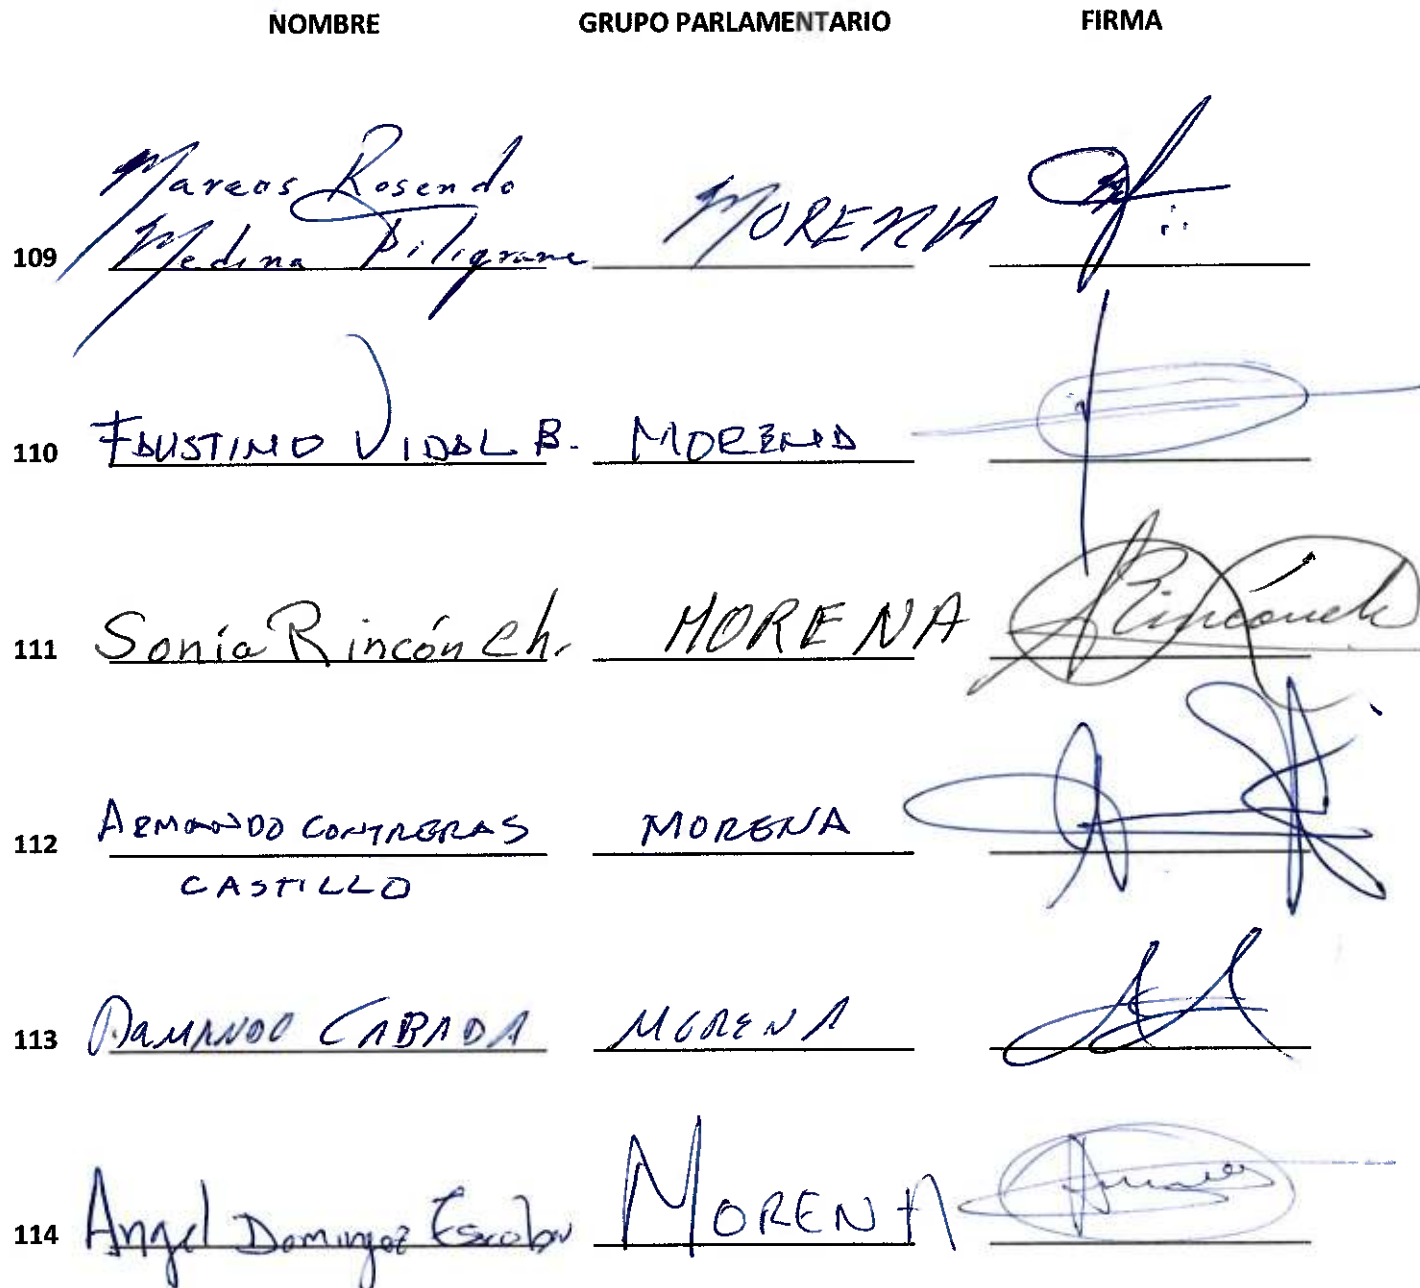 NOMBRE GRUPO PARLAMENTARIO FIRMA
Marcos Rosendo
109 Medina Piligrane MORENA
110 FAUSTINO VIDAL B. MORENA
111 Sonia Rincón Ch. MORENA Rincónch
112 ARMANDO CONTRERAS MORENA
CASTILLO
113 ARMANDO CABADA MORENA
114 Angel Dominguez Escobar MORENA